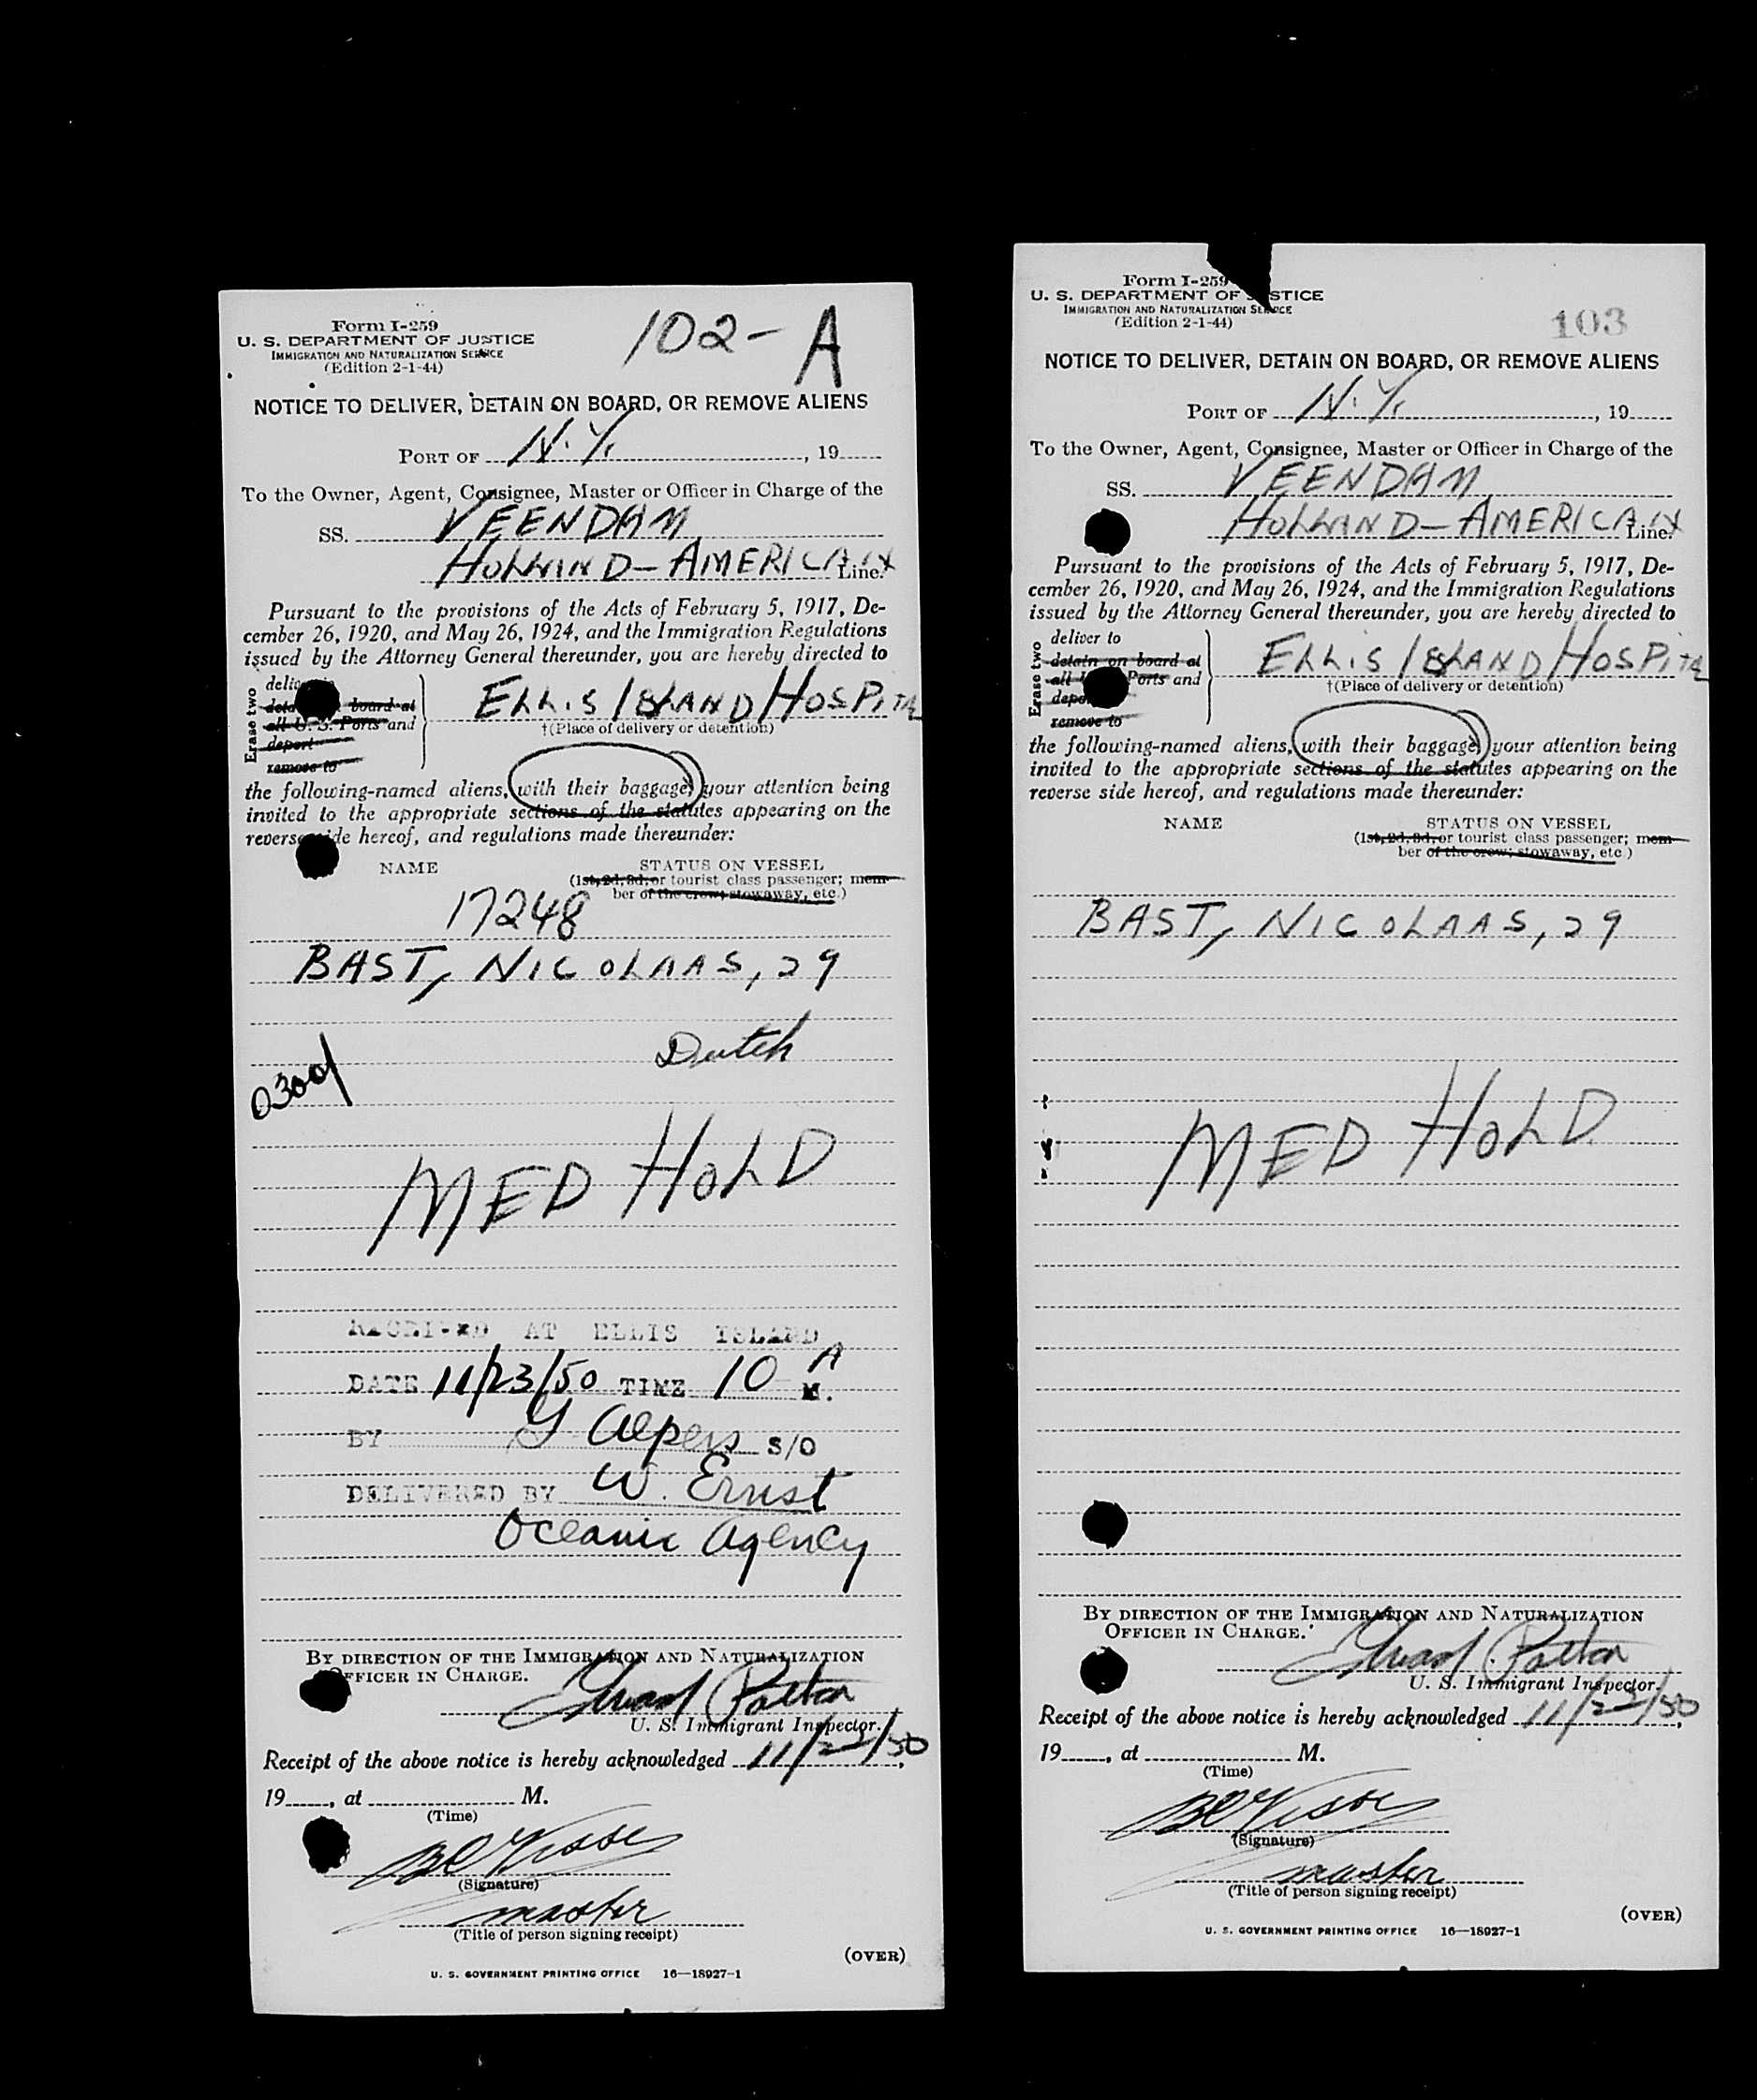 Form I-259
U. S. DEPARTMENT OF JUSTICE
IMMIGRATION AND NATURALIZATION SERVICE
(Edition 2-1-44)
102-A
NOTICE TO DELIVER, DETAIN ON BOARD, OR REMOVE ALIENS
PORT OF N.Y. , 19
To the Owner, Agent, Consignee, Master or Officer in Charge of the
SS. VEENDAM
HOLLAND-AMERICA Line.
Pursuant to the provisions of the Acts of February 5, 1917, De-
cember 26, 1920, and May 26, 1924, and the Immigration Regulations
issued by the Attorney General thereunder, you are hereby directed to
Erase two
board at
all U. S. Ports and
deport
remove to
ELLIS ISLAND HOSPITAL
†(Place of delivery or detention)
the following-named aliens, with their baggage, your attention being
invited to the appropriate sections of the statutes appearing on the
reverse side hereof, and regulations made thereunder:
NAME STATUS ON VESSEL
(1st, 2d, 3d, or tourist class passenger; mem-
ber of the crew; stowaway, etc.)
17248
BAST, NICOLAAS, 29
Dutch
0300
MED HOLD
RECEIVED AT ELLIS ISLAND
DATE 11/23/50 TIME 10 A M.
BY Alpers S/O
DELIVERED BY W. Ernst
Oceanic Agency
BY DIRECTION OF THE IMMIGRATION AND NATURALIZATION
OFFICER IN CHARGE.
Patton
U. S. Immigrant Inspector.
Receipt of the above notice is hereby acknowledged 11/23/50,
19 , at M.
(Time)
(Signature)
master
(Title of person signing receipt)
(OVER)
U. S. GOVERNMENT PRINTING OFFICE 16—18927-1
Form I-259
U. S. DEPARTMENT OF JUSTICE
IMMIGRATION AND NATURALIZATION SERVICE
(Edition 2-1-44)
103
NOTICE TO DELIVER, DETAIN ON BOARD, OR REMOVE ALIENS
PORT OF N.Y. , 19
To the Owner, Agent, Consignee, Master or Officer in Charge of the
SS. VEENDAM
HOLLAND-AMERICA Line.
Pursuant to the provisions of the Acts of February 5, 1917, De-
cember 26, 1920, and May 26, 1924, and the Immigration Regulations
issued by the Attorney General thereunder, you are hereby directed to
Erase two
deliver to
detain on board at
all Ports and
remove to
ELLIS ISLAND HOSPITAL
†(Place of delivery or detention)
the following-named aliens, with their baggage, your attention being
invited to the appropriate sections of the statutes appearing on the
reverse side hereof, and regulations made thereunder:
NAME STATUS ON VESSEL
(1st, 2d, 3d, or tourist class passenger; mem-
ber of the crew; stowaway, etc.)
BAST, NICOLAAS, 29
MED HOLD
BY DIRECTION OF THE IMMIGRATION AND NATURALIZATION
OFFICER IN CHARGE.
Patton
U. S. Immigrant Inspector.
Receipt of the above notice is hereby acknowledged 11/23/50,
19 , at M.
(Time)
(Signature)
master
(Title of person signing receipt)
(OVER)
U. S. GOVERNMENT PRINTING OFFICE 16—18927-1